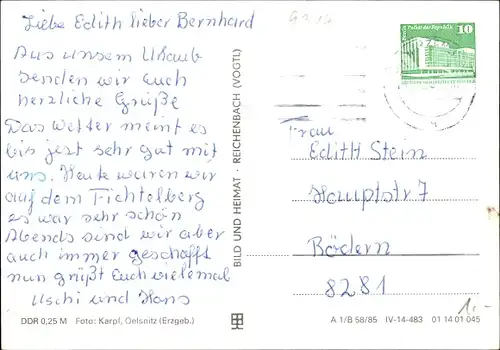 Liebe Edith lieber Bernhard
Aus unsem Uhaub
senden wir Euch
herzliche Grüße
Das Wetter meint es
bis jest sehr gut mit
uns. Heute waren wir
auf dem Fichtelberg
es war sehr schön
Abends sind wir aber
auch immer geschafft
nun grüßt Euch vielemal
Uschi und Hans
BILD UND HEIMAT · REICHENBACH (VOGTL)
Berlin Palast der Republik
10
Frau
Edith Stein
Hauptstr 7
Bödern
8281
1,-
DDR 0,25 M Foto: Karpf, Oelsnitz (Erzgeb.)
A 1/B 58/85 IV-14-483 01 14 01 045